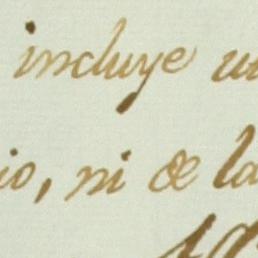 incluye u
io, ni de la